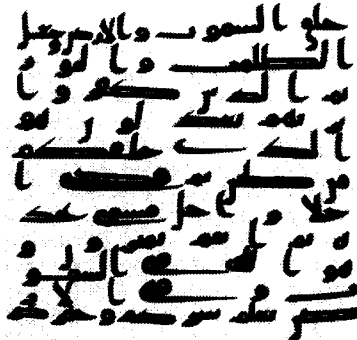 خلق السموت والارض وجعل
الظلمت والنور
ثم الذين كفروا
بربهم يعدلون هو
الذي خلقكم
من طين ثم قضى ا
جلا واجل مسمى عند
ه ثم انتم تمترون و
هو الله في السمو
ت وفي الا
رض يعلم سركم وجهر